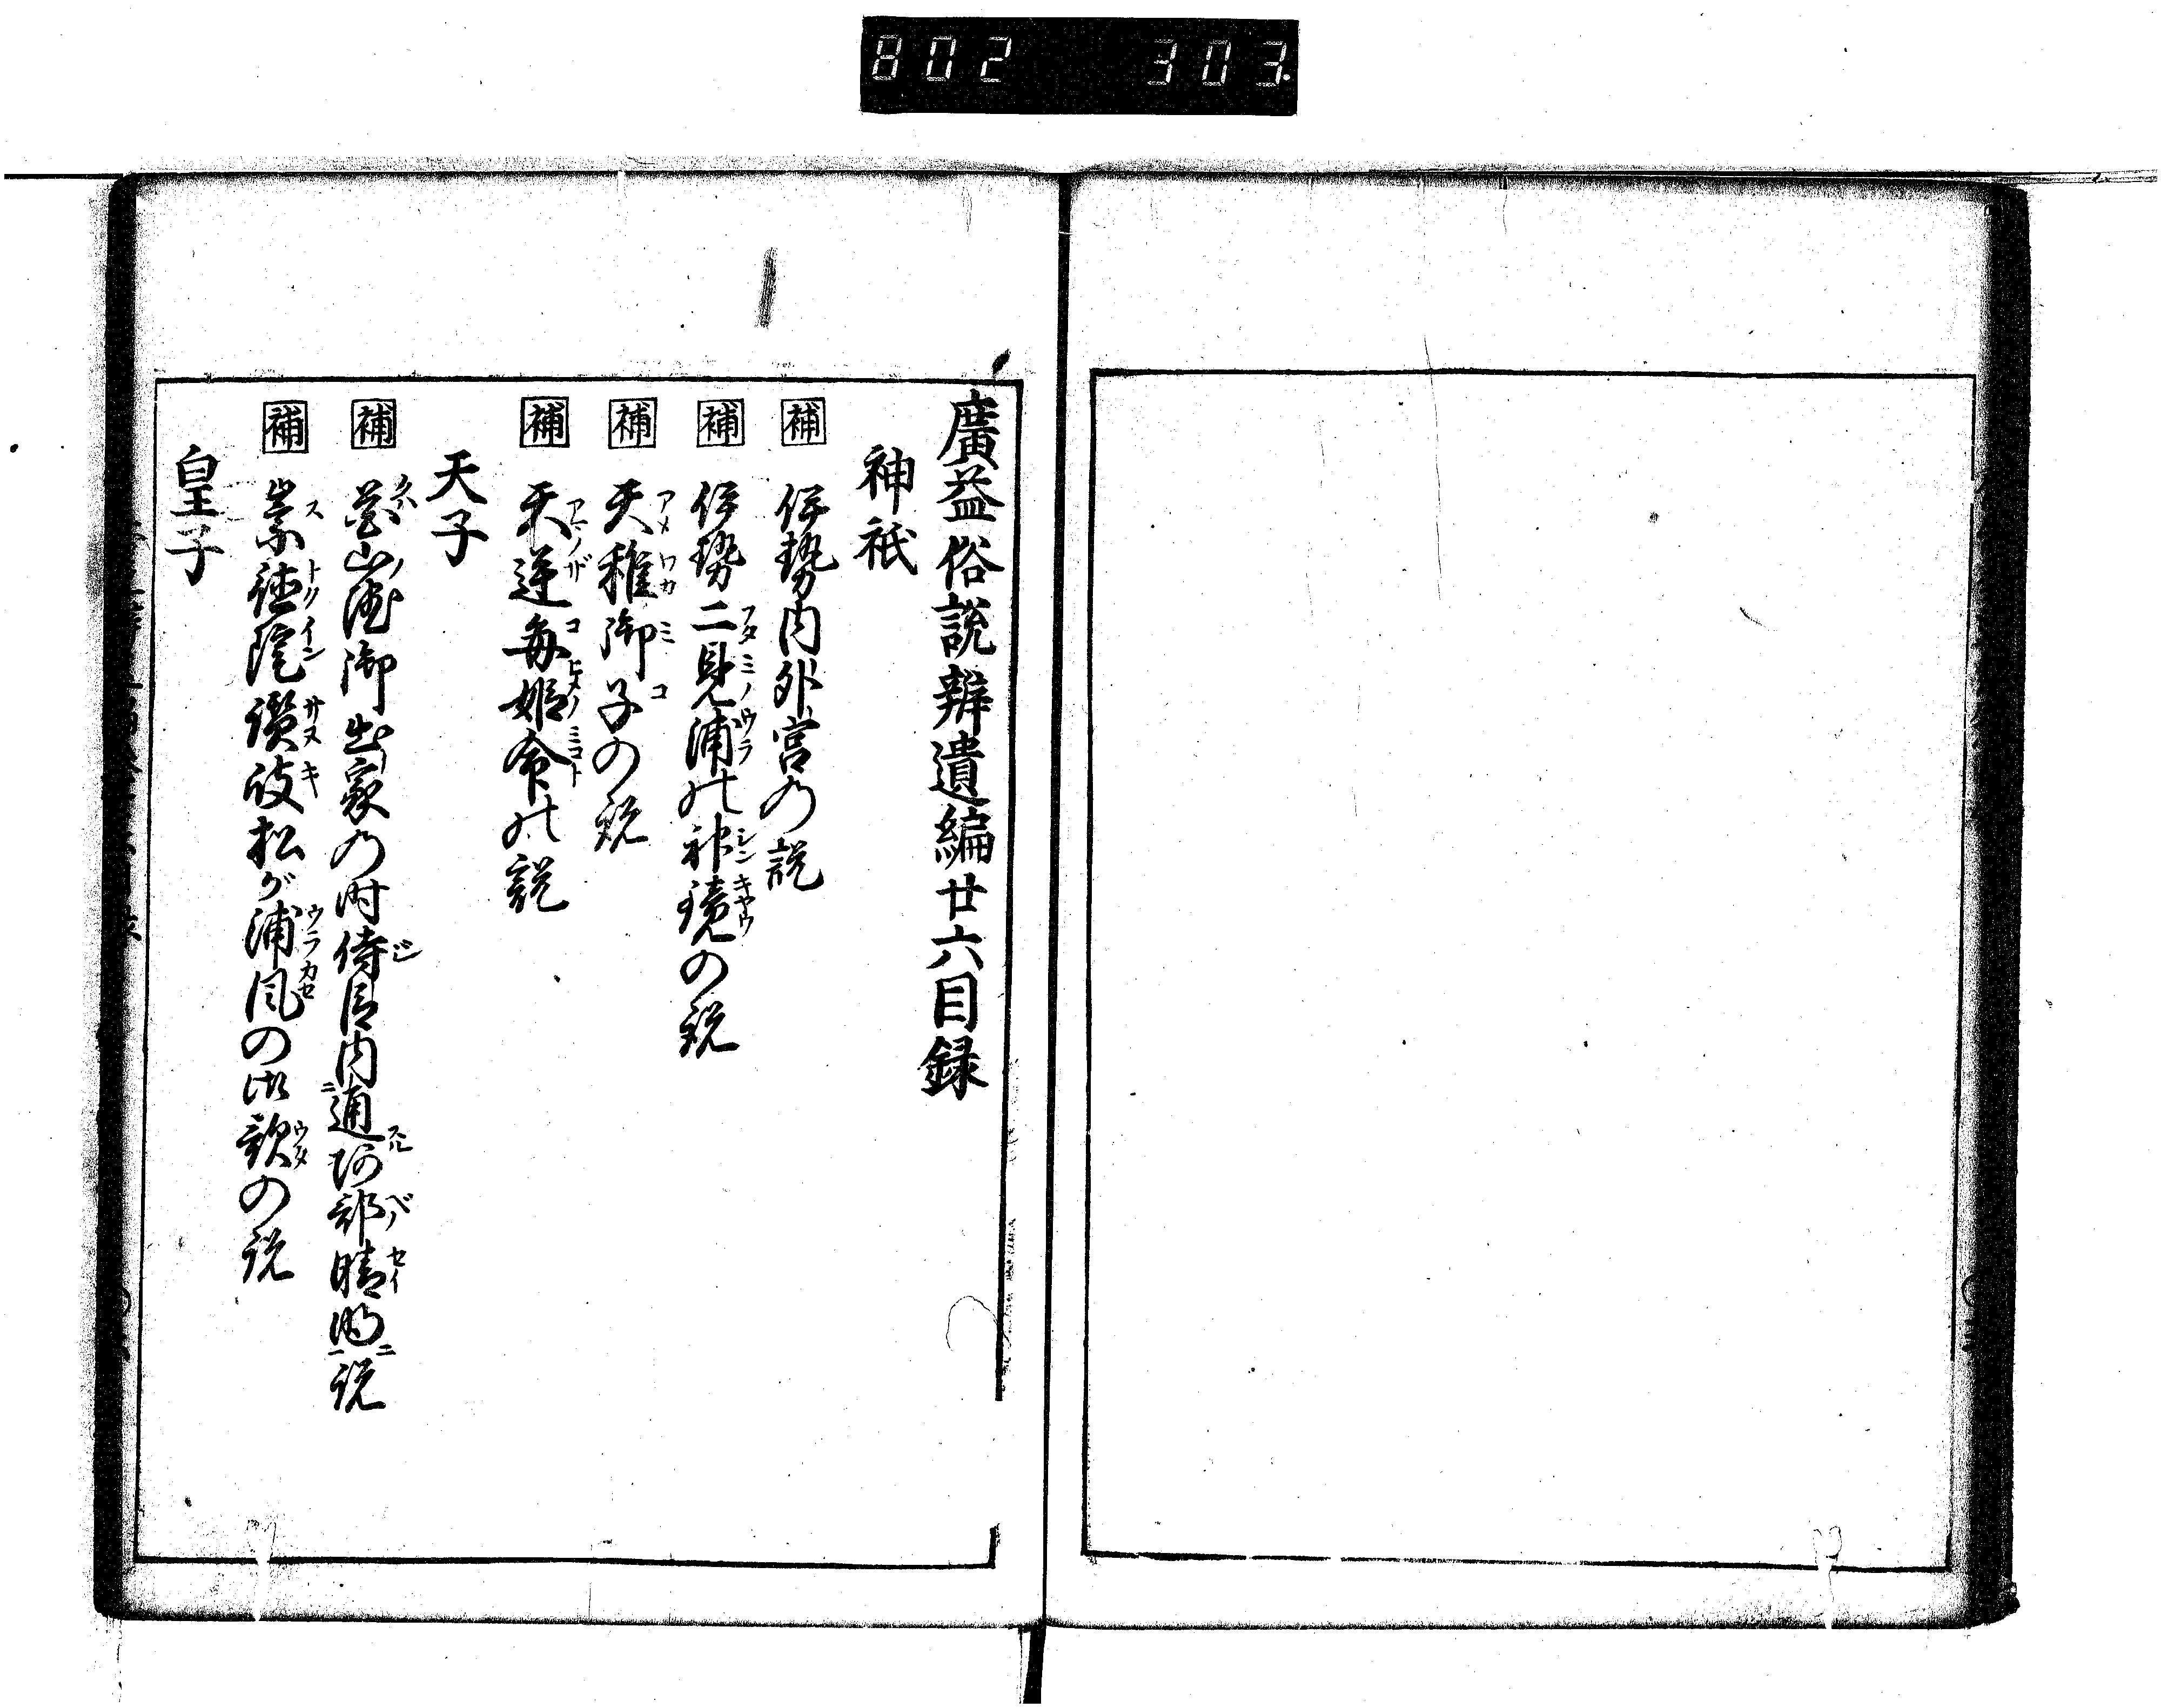 802 303
廣益俗説辨遺編廿六目録
神祇
補 伊勢内外宮の説
補 伊勢二見浦の神鏡の説
補 天稚御子の説
補 天逆毎姫命の説
天子
補 花山院御出家の時侍臣内通阿部晴明説
補 崇徳院讃岐松が浦風の御歌の説
皇子